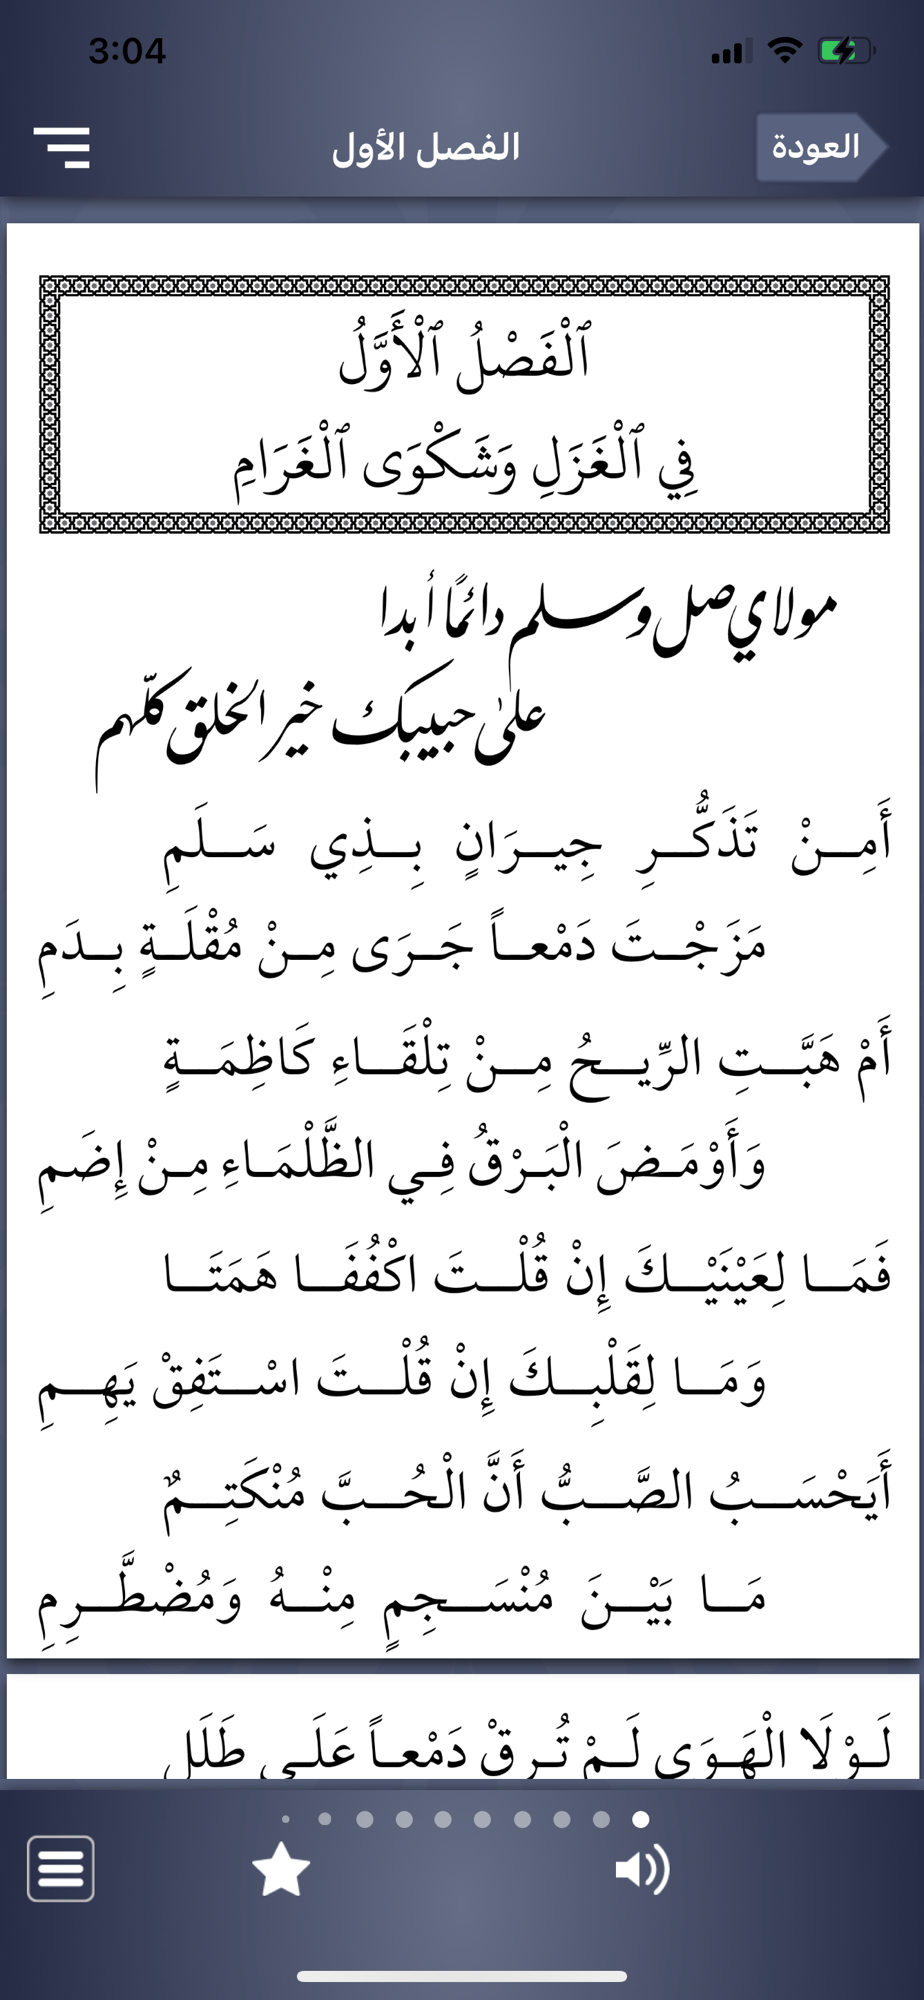 3:04
العودة
الفصل الأول
ٱلْفَصْلُ ٱلْأَوَّلُ
فِي ٱلْغَزَلِ وَشَكْوَى ٱلْغَرَامِ
مولاي صل وسلم دائمًا أبدا
علىٰ حبيبك خير الخلق كلّهم
أَمِـنْ تَذَكُّـرِ جِيـرَانٍ بِـذِي سَـلَمِ
مَزَجْـتَ دَمْعـاً جَـرَى مِـنْ مُقْلَـةٍ بِـدَمِ
أَمْ هَبَّـتِ الرِّيـحُ مِـنْ تِلْقَـاءِ كَاظِمَـةٍ
وَأَوْمَـضَ الْبَـرْقُ فِـي الظَّلْمَـاءِ مِـنْ إِضَمِ
فَمَـا لِعَيْنَيْـكَ إِنْ قُلْـتَ اكْفُفَـا هَمَتَـا
وَمَـا لِقَلْبِـكَ إِنْ قُلْـتَ اسْـتَفِقْ يَهِـمِ
أَيَحْسَـبُ الصَّـبُّ أَنَّ الْحُـبَّ مُنْكَتِـمٌ
مَـا بَيْـنَ مُنْسَـجِمٍ مِنْـهُ وَمُضْطَّـرِمِ
لَـوْلَا الْهَـوَى لَـمْ تُـرِقْ دَمْعـاً عَلَـى طَلَلٍ